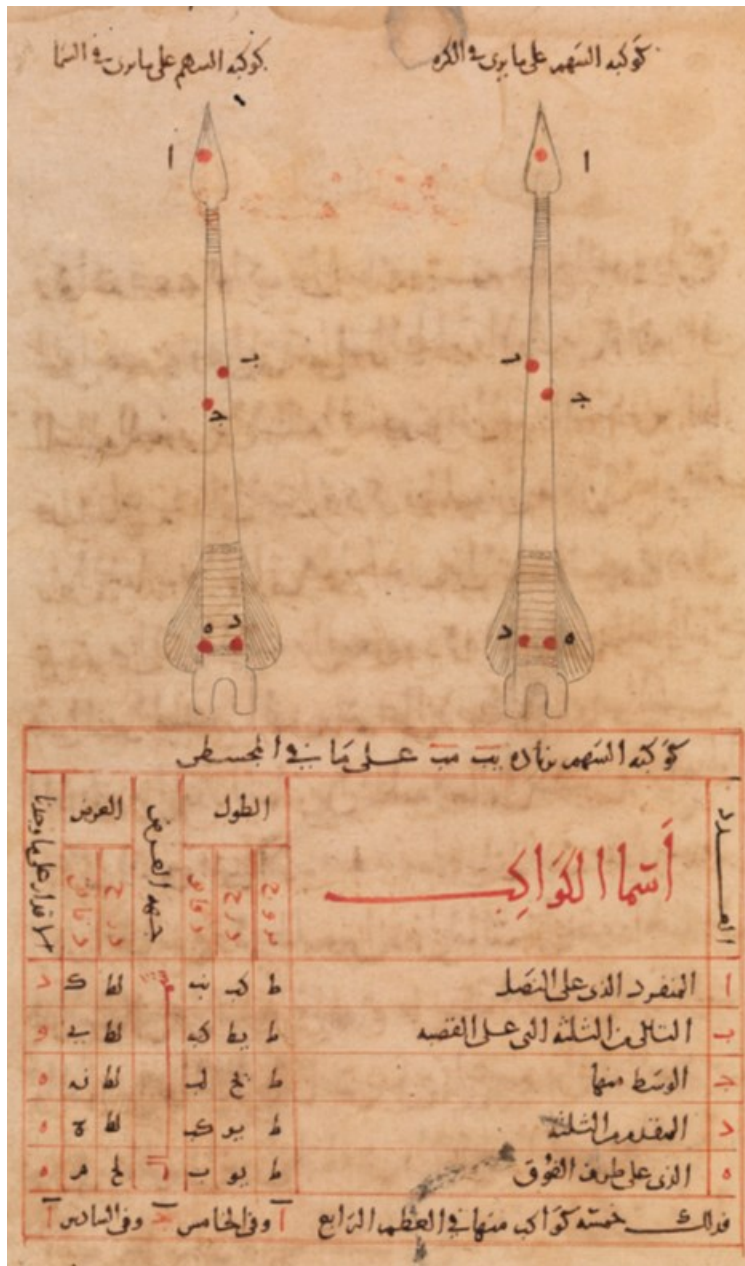 كوكبه السهم على ما يرى في الكره
كوكبه السهم على ما يرى في السما
ا
ب
ج
د ه
ا
ب
ج
ه د
كوكبه السهم بزياده يب مب على ما في المجسطي
العدد أسما الكواكب الطول جهه العرض العرض الاقدار على ما وجدنا
بروج درج دقايق درج دقايق
ا المنفرد الذي على النصل ط كب نب لط ك د
ب التالي من الثلثه التي على القصبه ط يط كب لط ي و
ج الوسط منها ط يح لب لط ن ه
د المقدم من الثلثه ط يو كب لط ه
ه الذي على طرف الفوق ط يو ب لح م ه
فذلك خمسه كواكب منها في العظم الرابع ا وفي الخامس ج وفي السادس ا